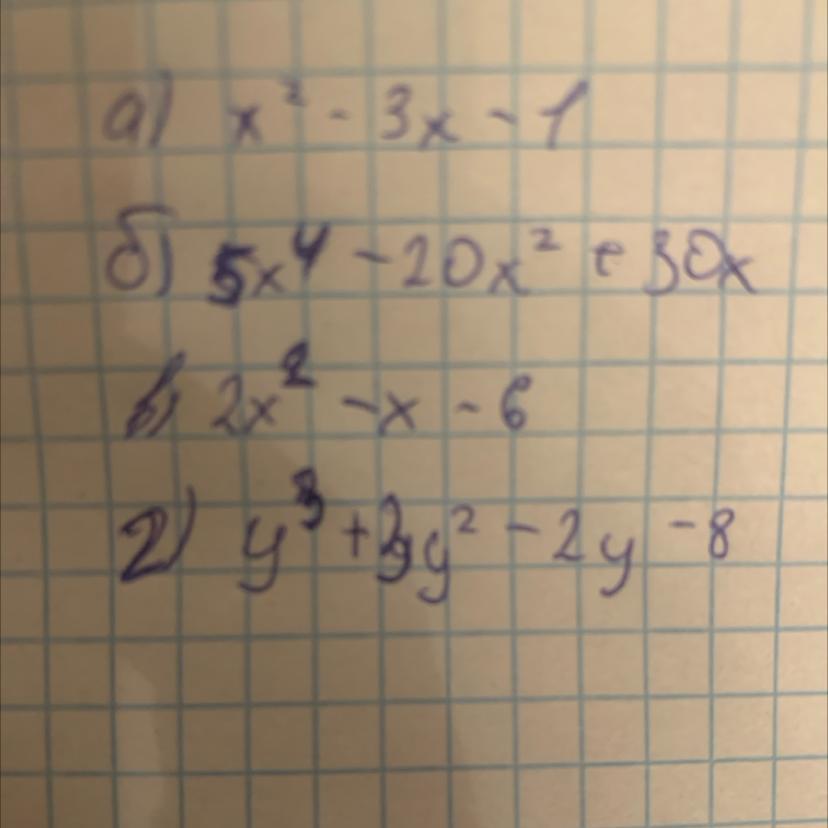 а) x² - 3x - 1
б) 5x⁴ - 20x² + 30x
в) 2x² - x - 6
г) y³ + y² - 2y - 8